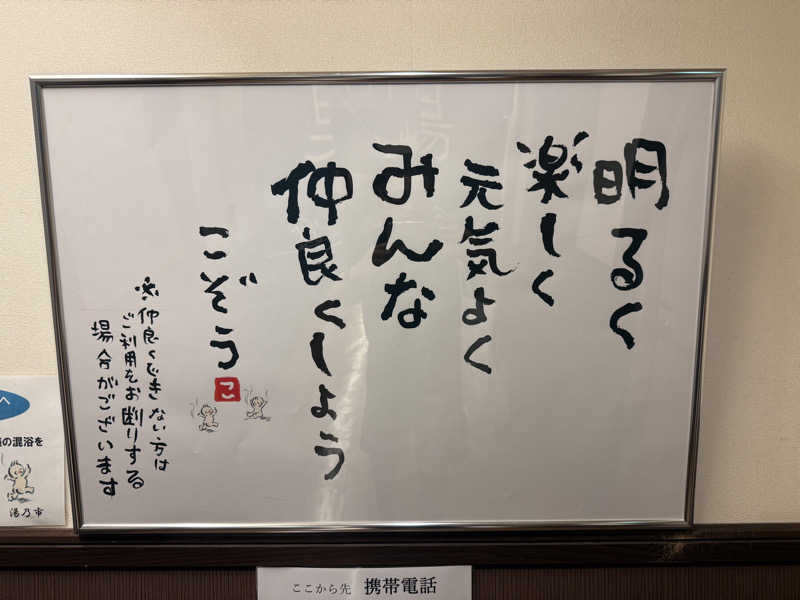 明るく
楽しく
元気よく
みんな
仲良くしよう
こぞう
こ
※仲良くできない方は
ご利用をお断りする
場合がございます
へ
の混浴を
湯乃市
ここから先 携帯電話